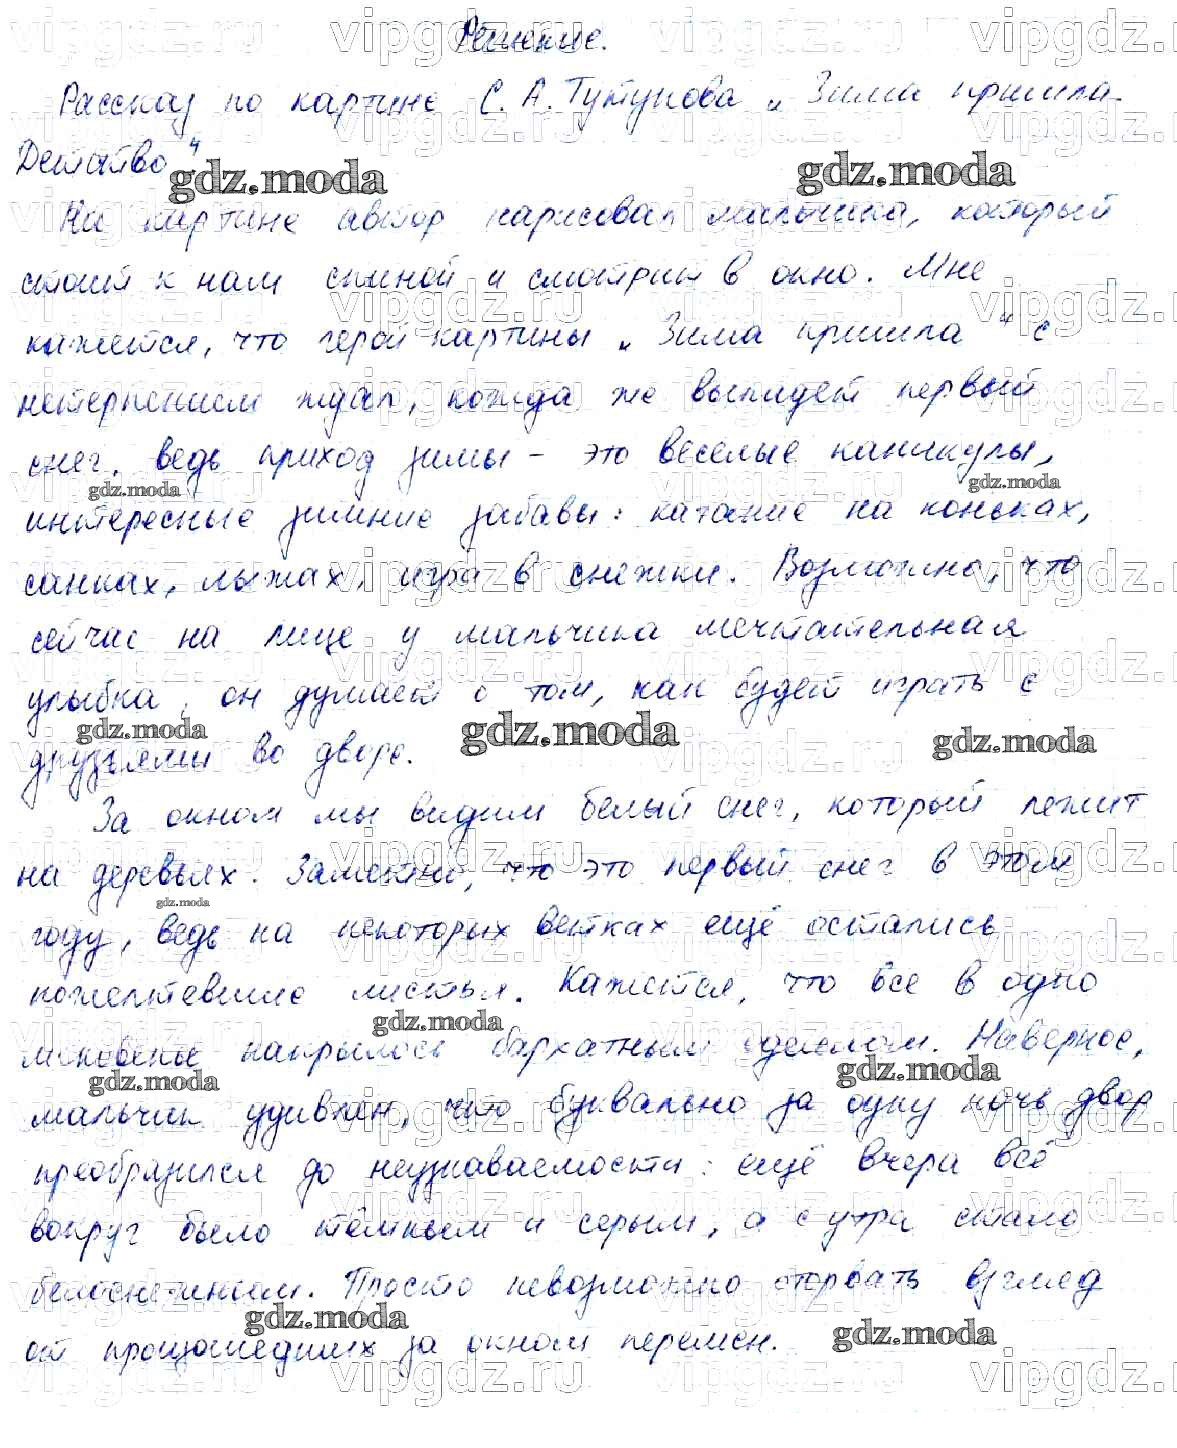 Решение.
Рассказ по картине С. А. Тутунова „Зима пришла.
Детство"
На картине автор нарисовал мальчика, который
стоит к нам спиной и смотрит в окно. Мне
кажется, что герой картины „Зима пришла" с
нетерпением ждал, когда же выпадет первый
снег, ведь приход зимы – это веселые каникулы,
интересные зимние забавы: катание на коньках,
санках, лыжах, игра в снежки. Возможно, что
сейчас на лице у мальчика мечтательная
улыбка, он думает о том, как будет играть с
друзьями во дворе.
За окном мы видим белый снег, который лежит
на деревьях. Заметно, что это первый снег в этом
году, ведь на некоторых ветках ещё остались
пожелтевшие листья. Кажется, что все в одно
мгновенье накрылось бархатным одеялом. Наверное,
мальчик удивлен, что буквально за одну ночь двор
преобразился до неузнаваемости: ещё вчера всё
вокруг было тёмным и серым, а с утра стало
белоснежным. Просто невозможно оторвать взгляд
от произошедших за окном перемен.
vipgdz.ru
gdz.moda